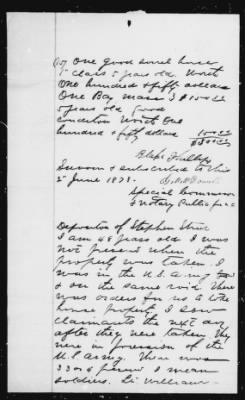 by One good sorrel horse
7 Years 5 years old. Worth
One hundred & fifty dollars
One Bay mare 3 $150.00
5 years old Good
condition Worth One
hundred & fifty dollars 150.00
$300.00
Blafe Phillips
Sworn & subscribed to this
5" June 1878.
Special Commissioner
& Notary Public for
Deposition of Stephen
I am 48 years old I was
not present when the
property was taken. I
was in the U.S. Army too
& on the same raid. There
was orders for us to take
horse property. I saw
claimants the next day
after they were taken they
were in possession of the
U.S. Army. There was
33 or 4 present I mean
soldiers. Lt Williams